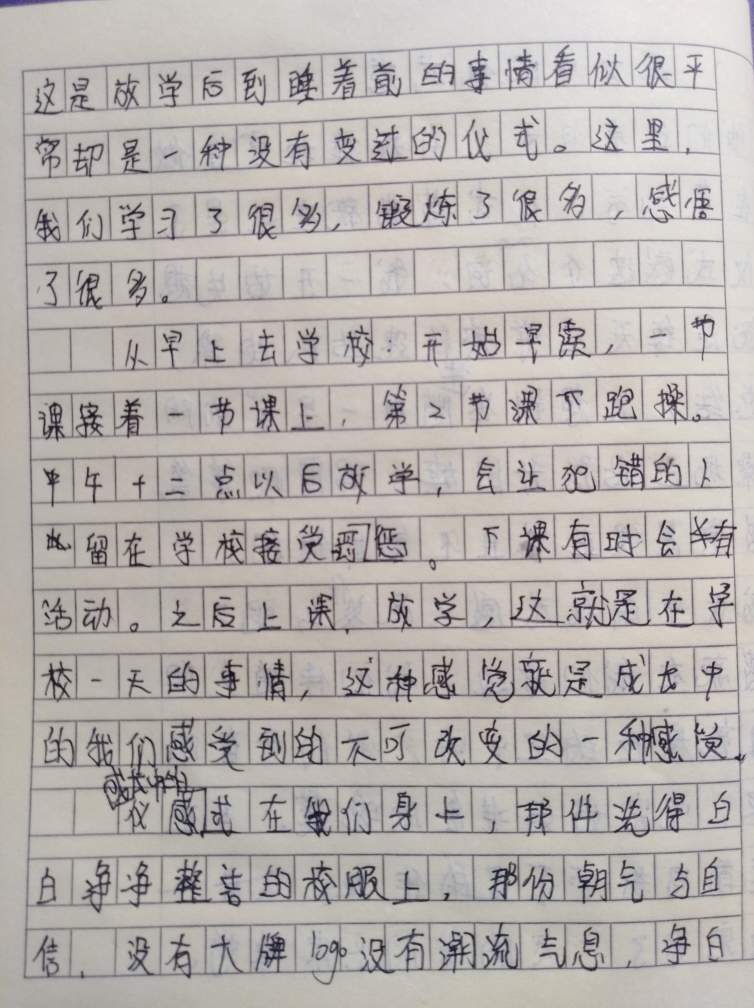 这是放学后到睡着前的事情看似很平
常却是一种没有变过的仪式。这里，
我们学习了很多，锻炼了很多，感悟
了很多。
从早上去学校：开始早读，一节
课接着一节课上，第2节课下跑操。
中午十二点以后放学，会让犯错的人
留在学校接受惩。下课有时会有
活动。之后上课，放学，这就是在学
校一天的事情，这种感觉就是成长中
的我们感觉到的不可改变的一种感觉。
成长中的
仪式在我们身上，那件洗得白
白净净整洁的校服上，那份朝气与自
信，没有大牌logo没有潮流气息，净白